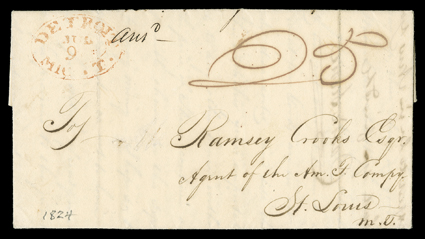 DETROIT
JUL
9
MIC. T.
ansd
25
To
Ramsey Crooks Esqr.
Agent of the Am. F. Compy.
St. Louis
M.T.
1824